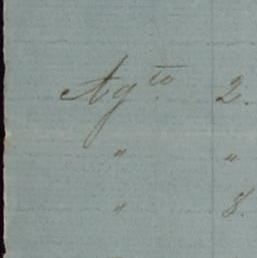 Agto. 2.
" "
" 8.